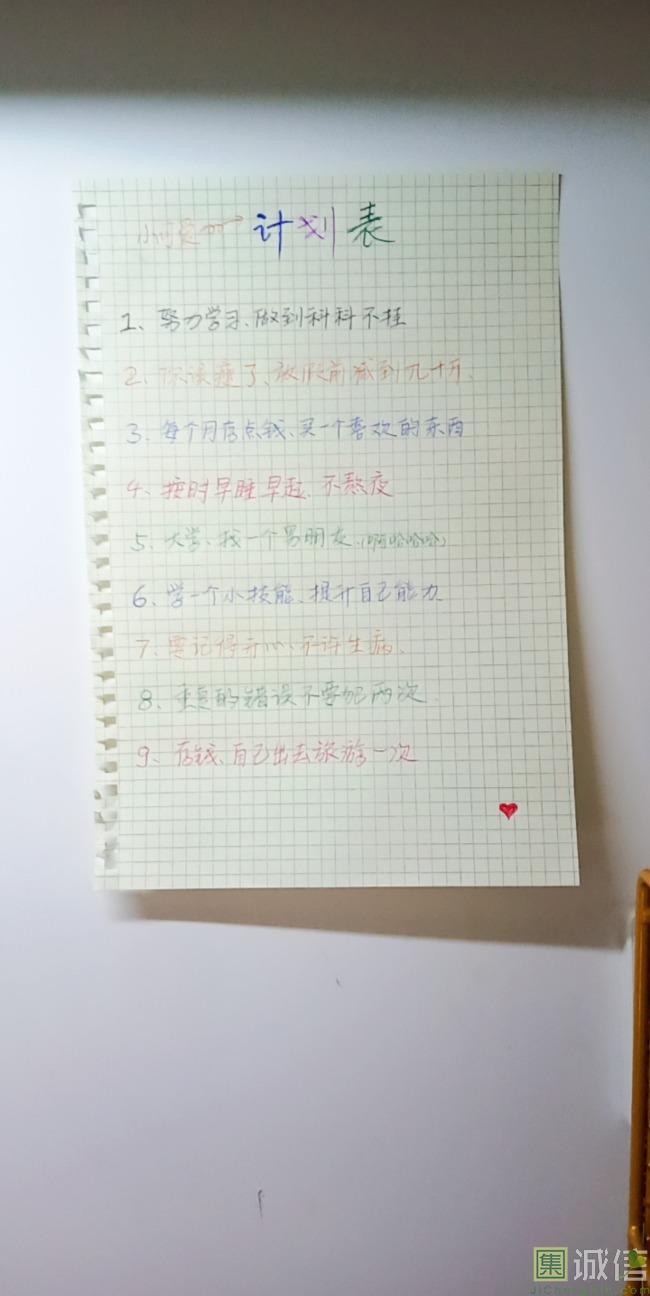 小可爱的→计划表
1、努力学习、做到科科不挂
2、你该瘦了、放假前减到九十斤、
3、每个月存点钱、买一个喜欢的东西
4、按时早睡早起、不熬夜
5、大学、找一个男朋友、(啊哈哈哈)
6、学一个小技能、提升自己能力
7、要记得开心、不许生病、
8、重复的错误不要犯两次
9、存钱、自己出去旅游一次
集 诚信